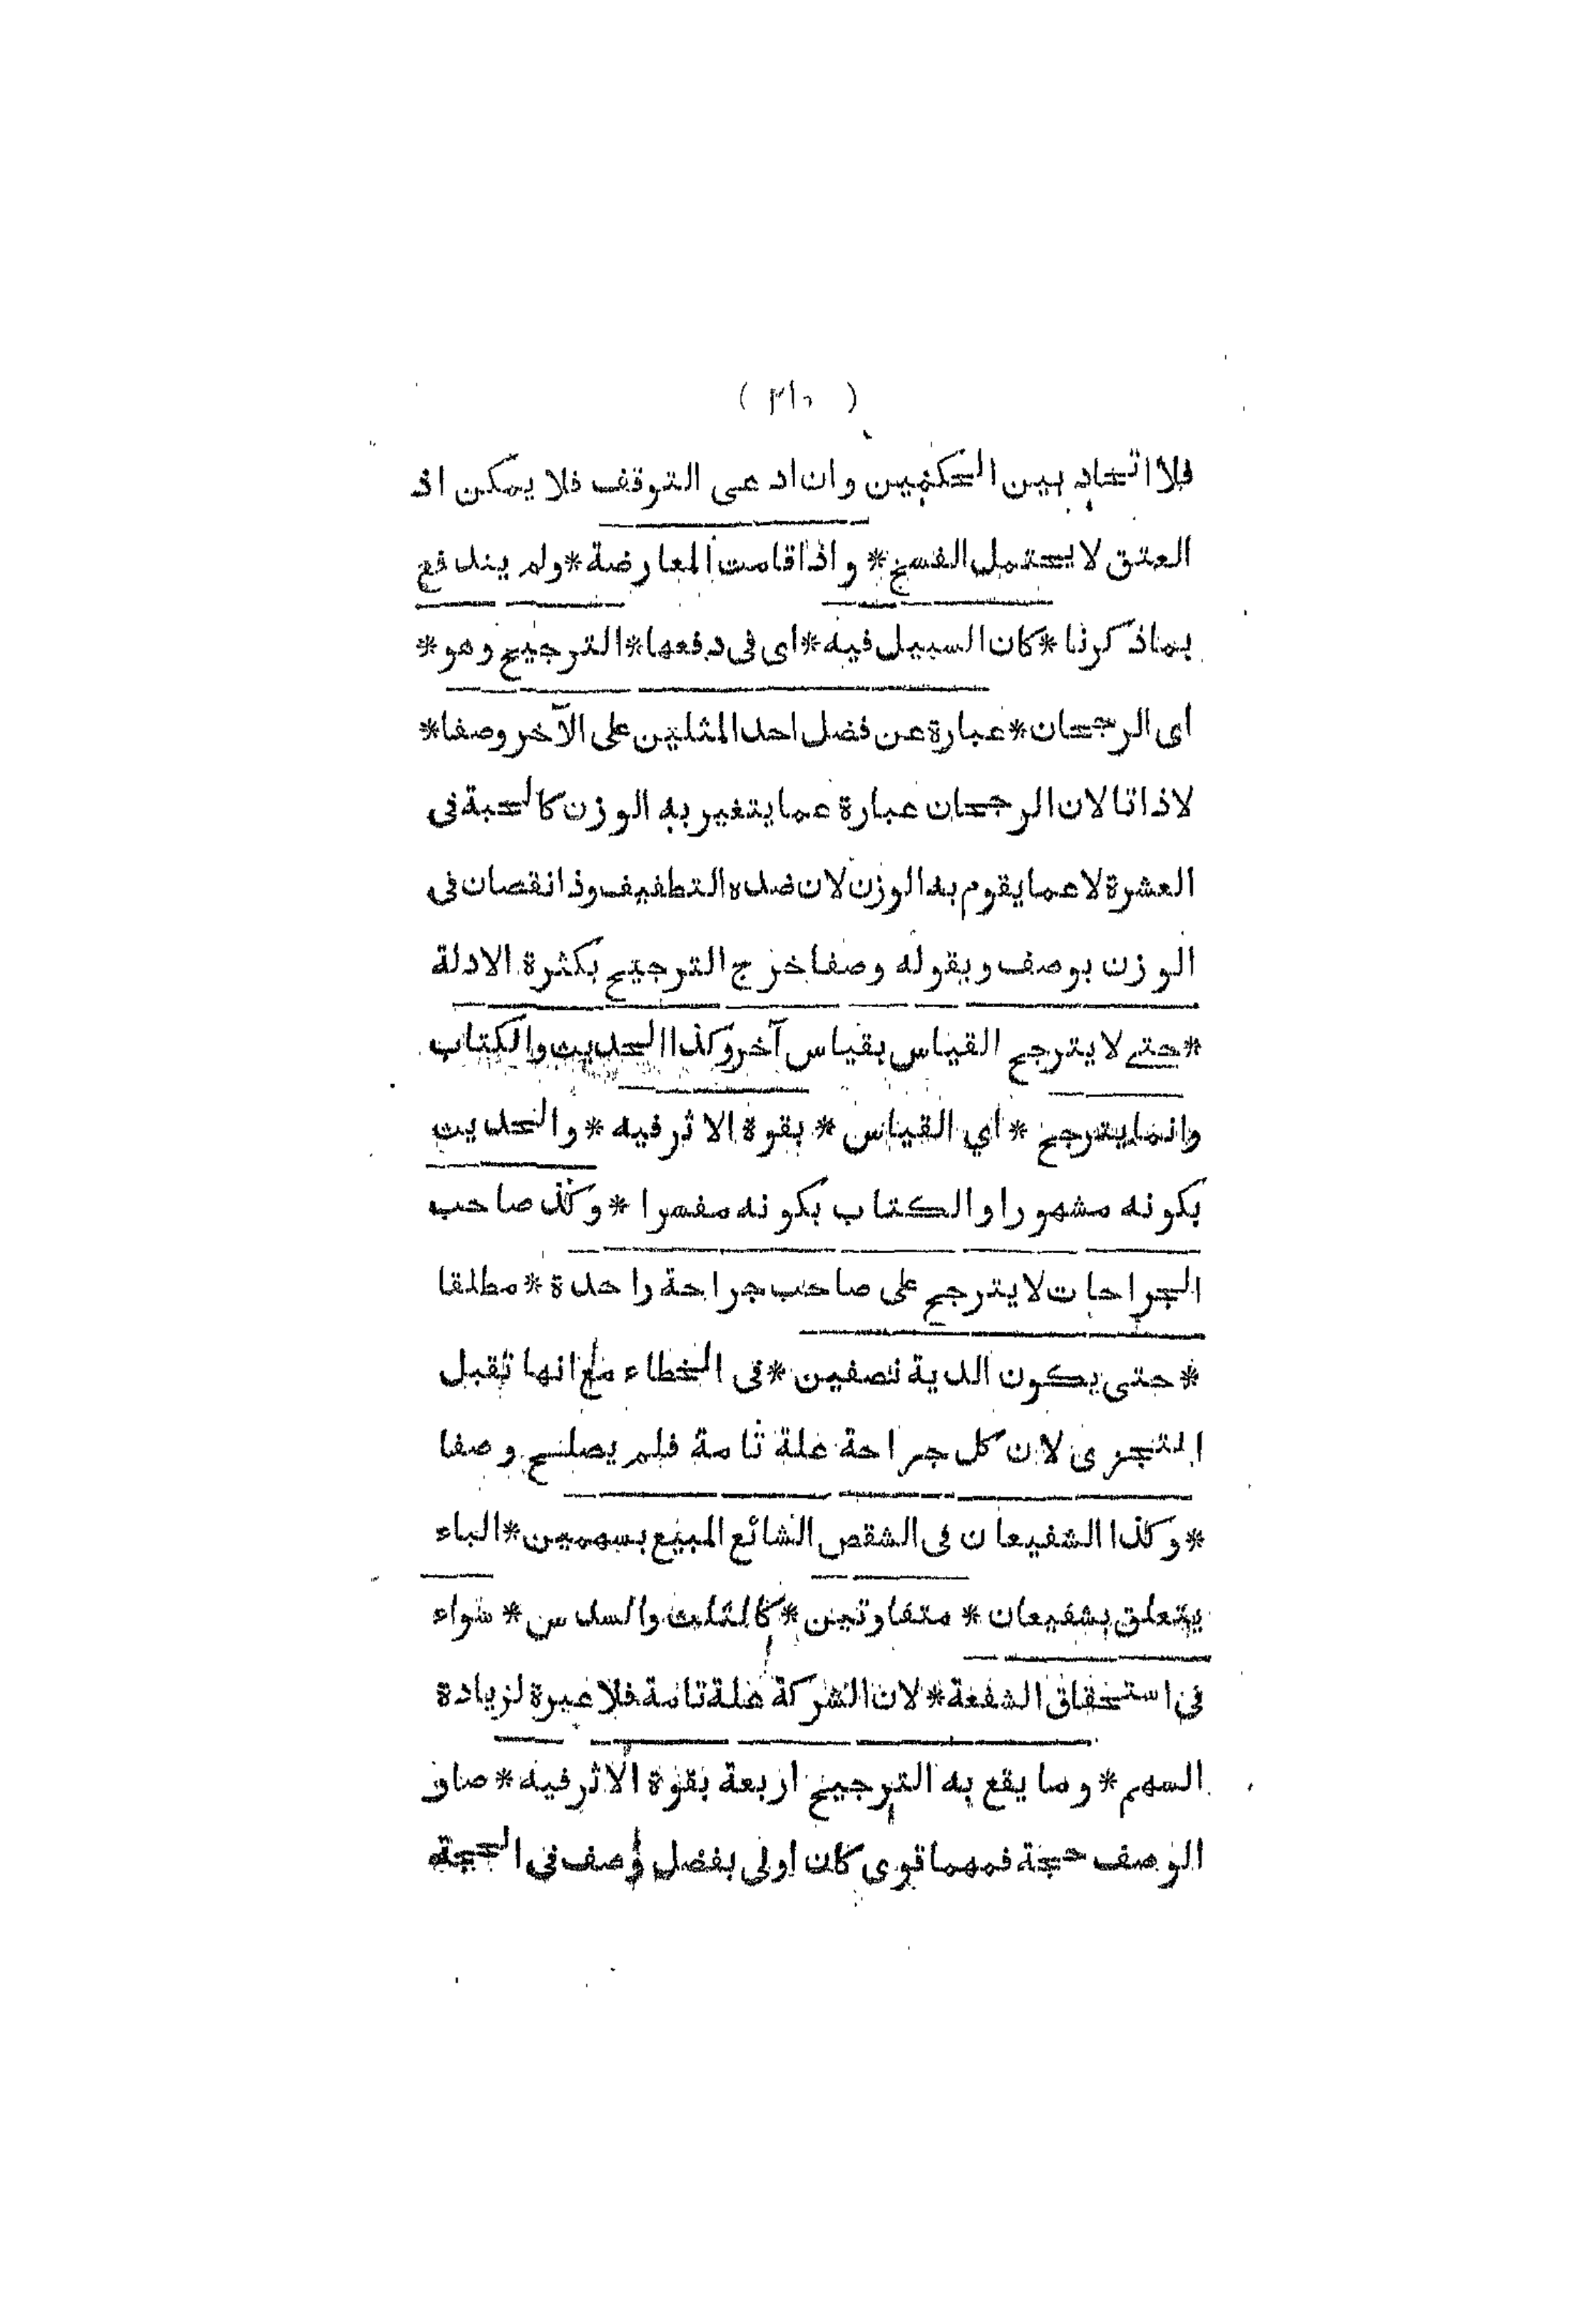 فلا اتحاد بين الحكمين وان ادعى التوقف فلا يمكن اذ
العتق لا يحتمل الفسخ * واذا قامت المعارضة * ولم يندفع
بماذكرنا * كان السبيل فيه * اى فى دفعها * الترجيح وهو *
اى الرجحان * عبارة عن فضل احد المثلين على الآخر وصفا *
لاذاتا لان الرجحان عبارة عما يتغير به الوزن كالحبة فى
العشرة لاعما يقوم به الوزن لان ضده التطفيف وذا نقصان فى
الوزن بوصف وبقوله وصفا خرج الترجيح بكثرة الادلة
* حتى لا يترجح القياس بقياس آخر وكذا الحديث والكتاب
وانما يترجح * اي القياس * بقوة الاثر فيه * والحديث
بكونه مشهورا والكتاب بكونه مفسرا * وكذ صاحب
الجراحات لا يترجح على صاحب جراحة واحدة * مطلقا
* حتى يكون الدية نصفين * فى الخطاء مع انها تقبل
التجزى لان كل جراحة علة تامة فلم يصلح وصفا
* وكذا الشفيعان فى الشقص الشائع المبيع بسهمين * الباء
يتعلق بشفيعان * متفاوتين * كالثلث والسدس * سواء
فى استحقاق الشفعة * لان الشركة علة تامة فلا عبرة لزيادة
السهم * وما يقع به الترجيح اربعة بقوة الاثر فيه * صار
الوصف حجة فمهما قوى كان اولى بفضل وصف فى الحجة